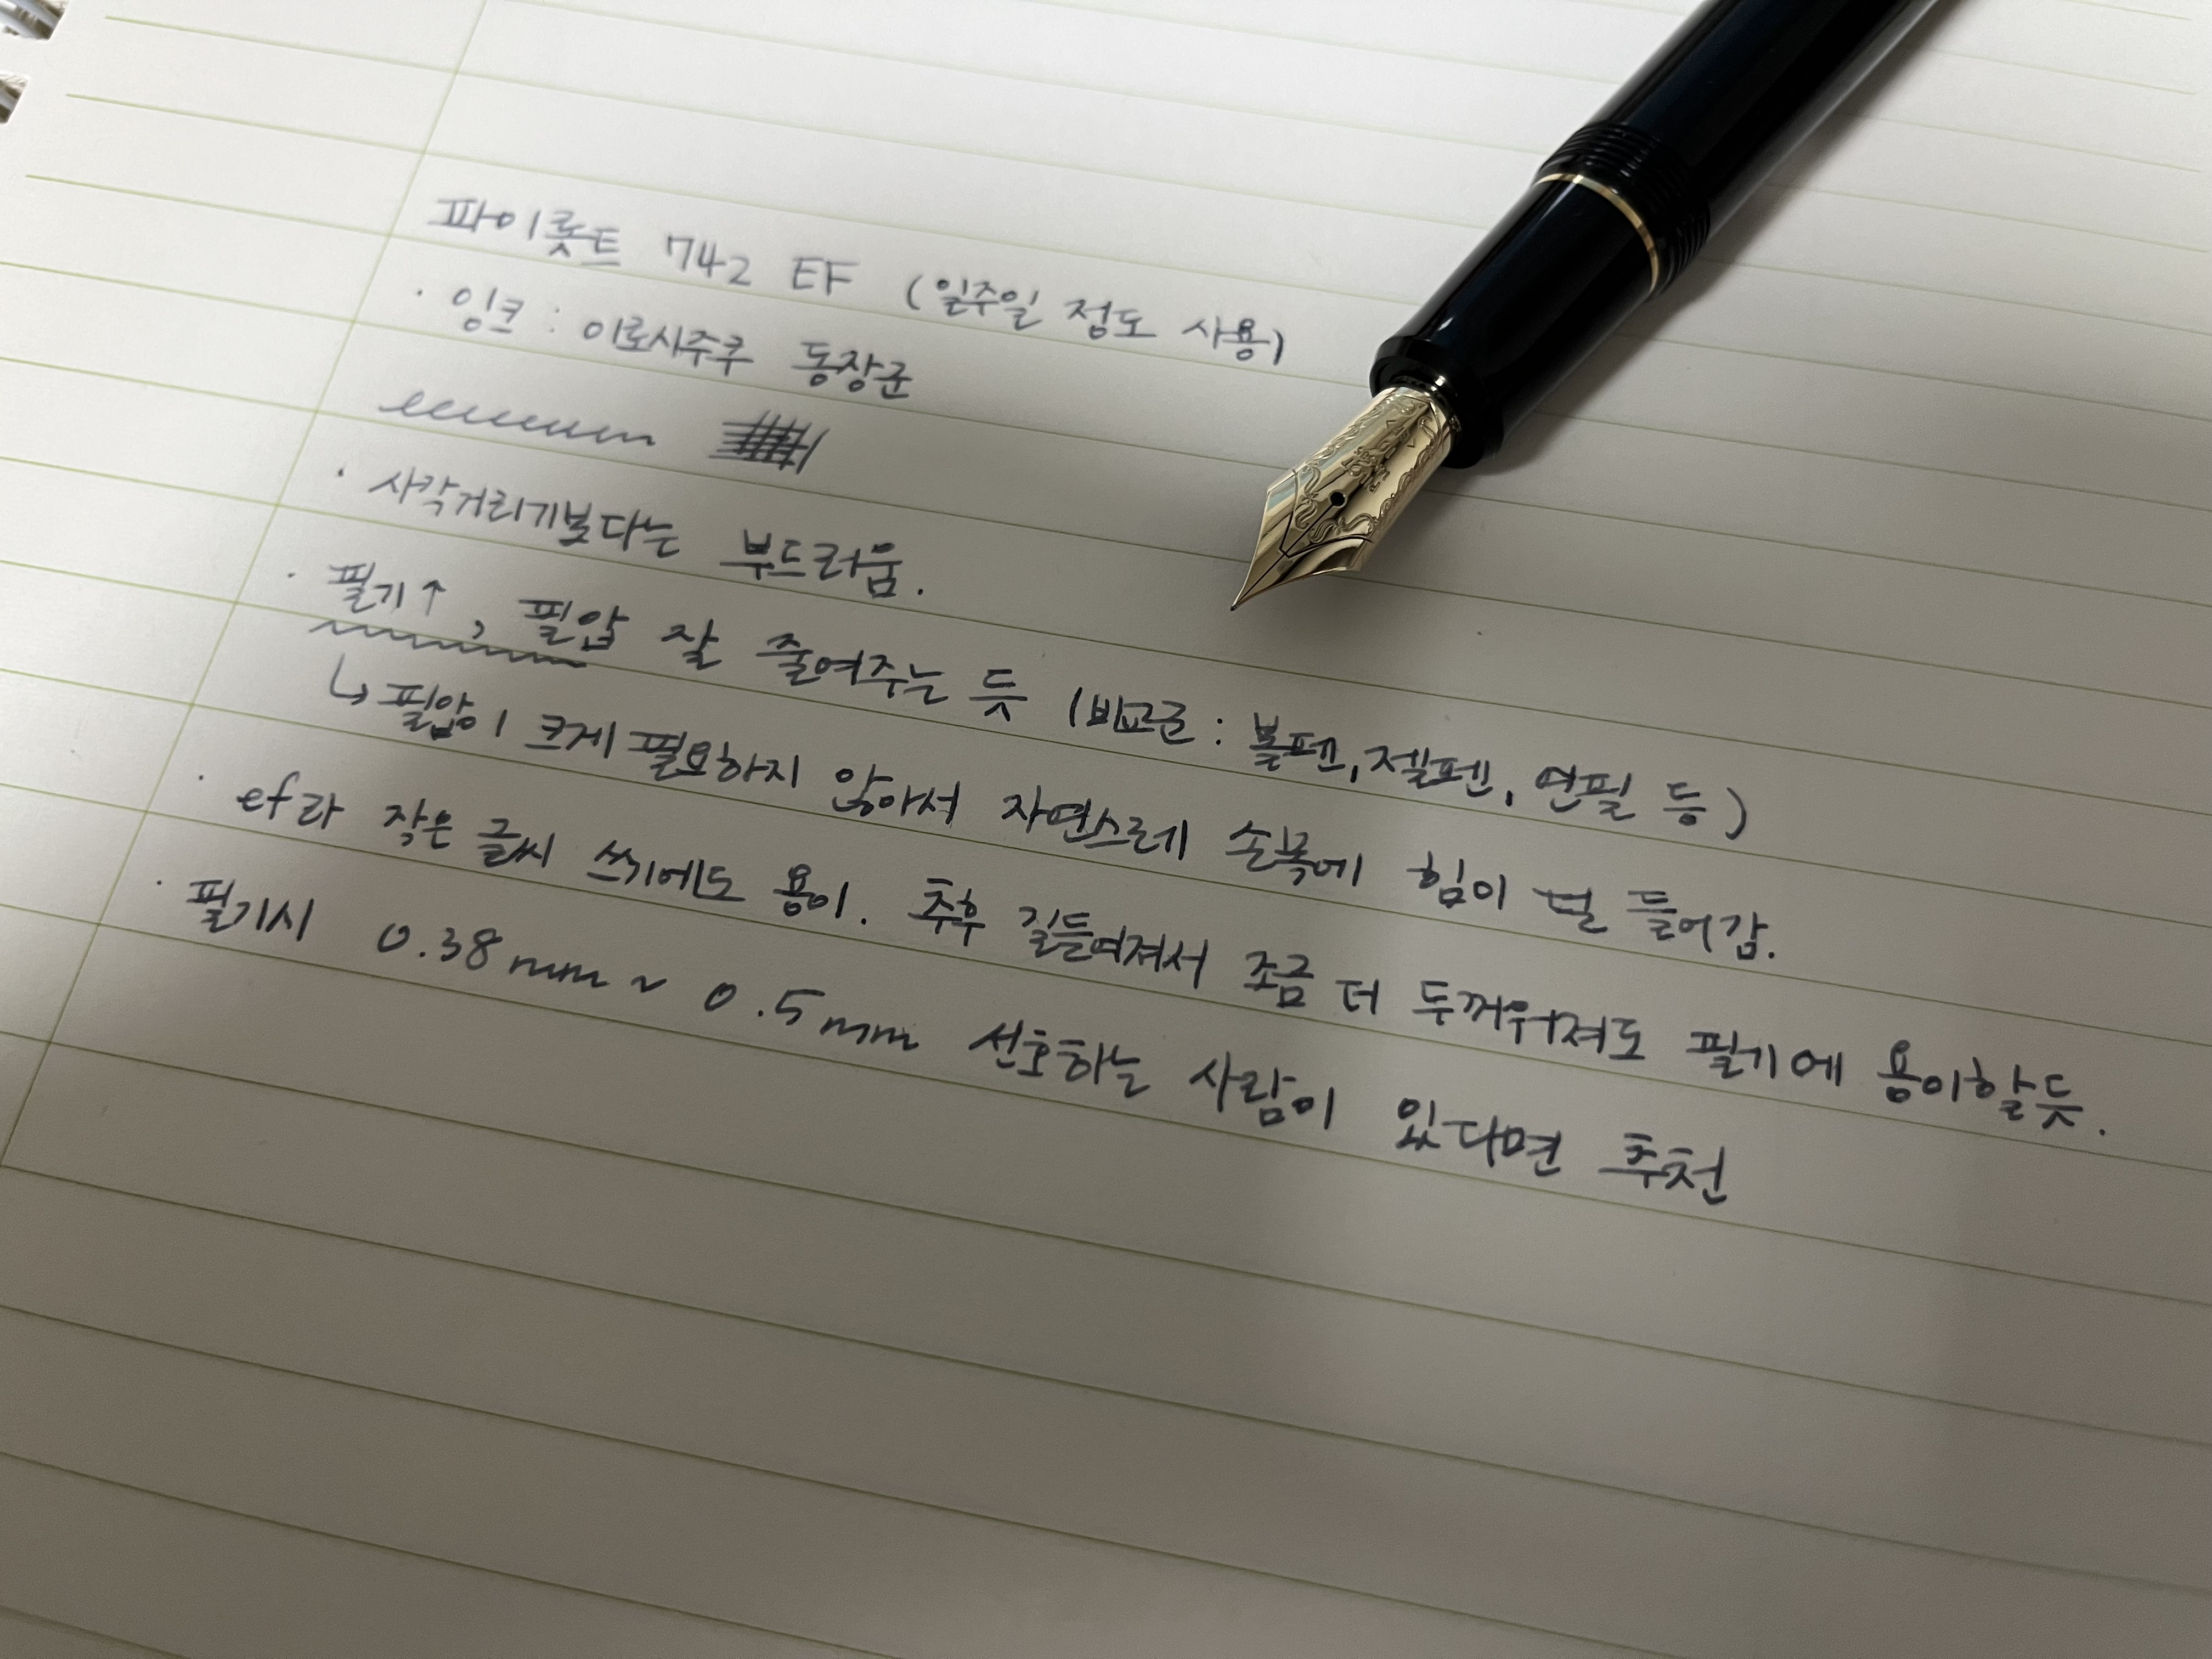 파이롯트 742 EF (일주일 정도 사용)
· 잉크 : 이로시주쿠 동장군
· 사각거리기보다는 부드러움.
· 필기↑, 필압 잘 줄여주는 듯 (비교군 : 볼펜, 젤펜, 연필 등)
↳ 필압이 크게 필요하지 않아서 자연스레 손목에 힘이 덜 들어감.
· ef라 작은 글씨 쓰기에도 용이. 추후 길들여져서 조금 더 두꺼워져도 필기에 용이할듯.
· 필기시 0.38mm ~ 0.5mm 선호하는 사람이 있다면 추천